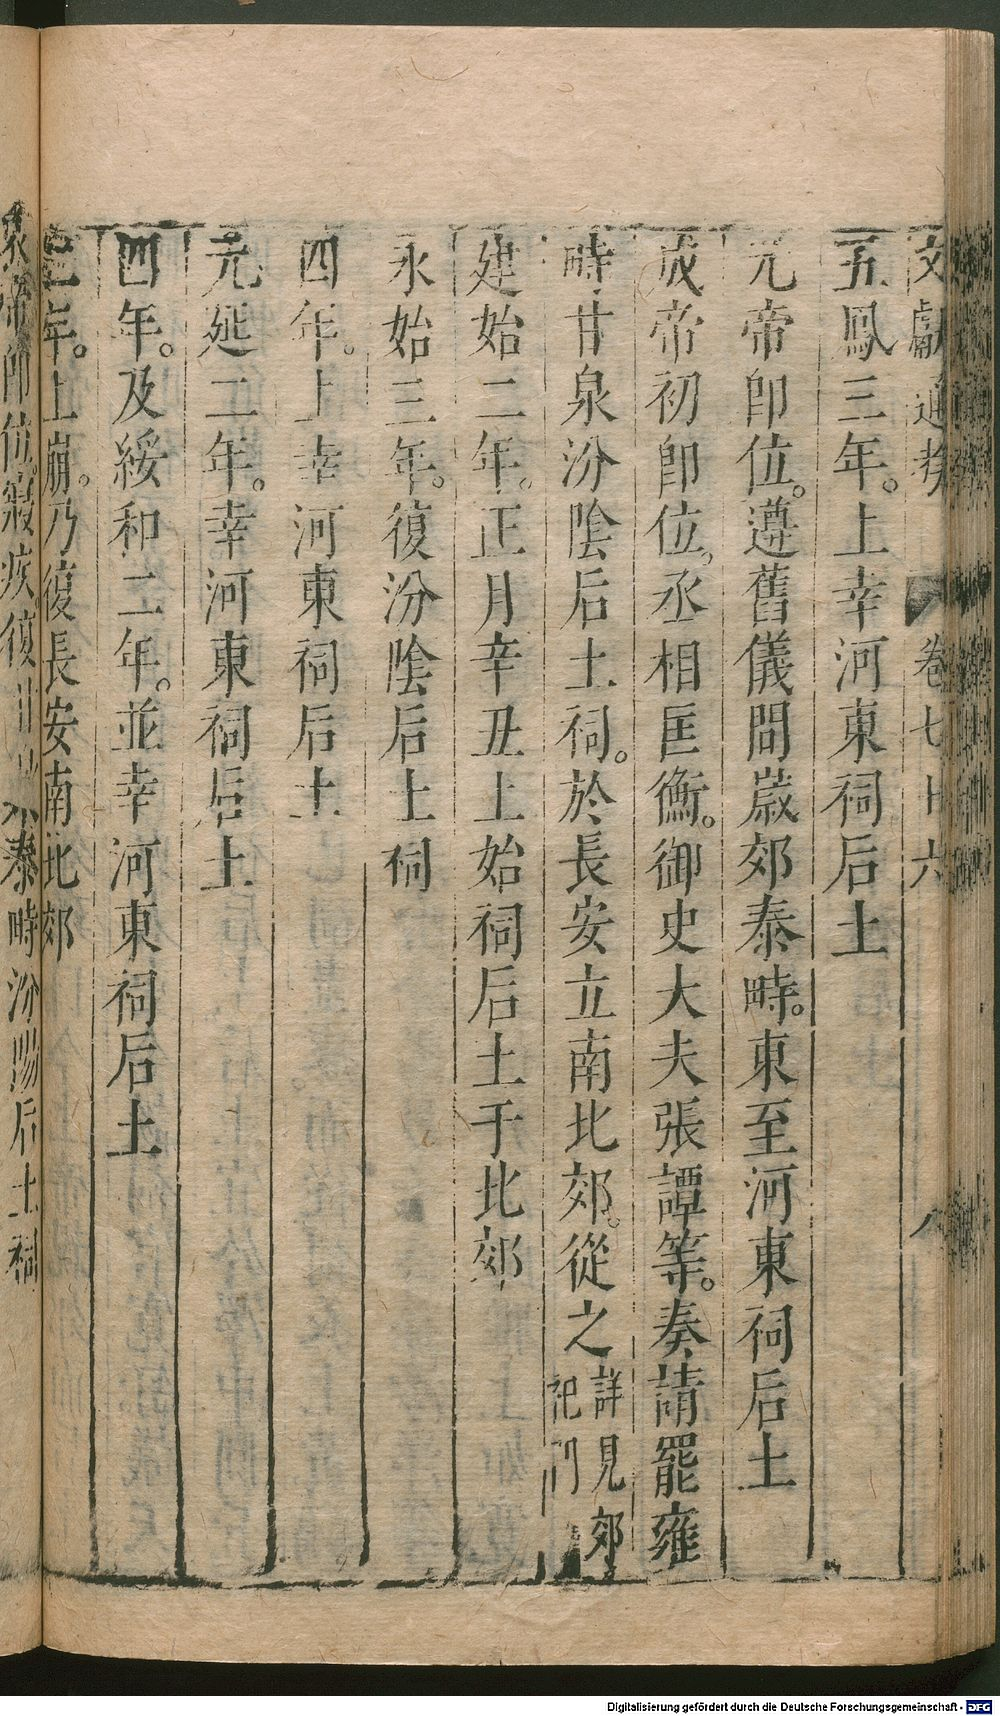 文獻通考 卷七十六 八
五鳳三年。上幸河東祠后土
元帝即位。遵舊儀間歲郊泰畤。東至河東祠后土
成帝初即位。丞相匡衡。御史大夫張譚等。奏請罷雍
畤甘泉汾陰后土祠。於長安立南北郊。從之詳見郊祀門
建始二年。正月辛丑上始祠后土于北郊
永始三年。復汾陰后土祠
四年。上幸河東祠后土
元延二年。幸河東祠后土
四年。及綏和二年。並幸河東祠后土
三年。上崩。乃復長安南北郊
哀帝即位。寢疾。復 泰畤汾陽后土祠
Digitalisierung gefördert durch die Deutsche Forschungsgemeinschaft - DFG